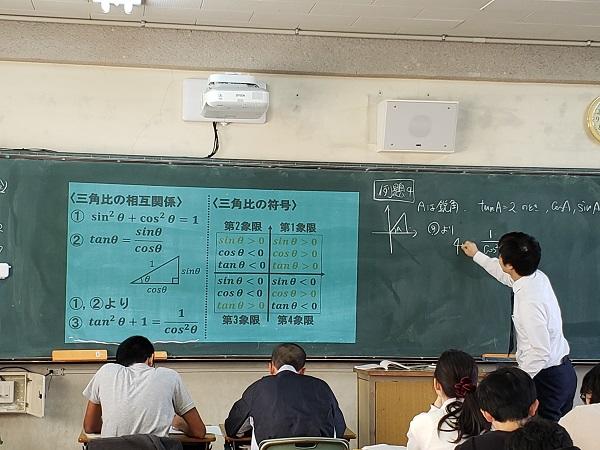 EPSON
〈三角比の相互関係〉
① sin² θ + cos² θ = 1
② tanθ = sinθ/cosθ
1
sinθ
θ
cosθ
①, ②より
③ tan² θ + 1 = 1/cos² θ
〈三角比の符号〉
第2象限 第1象限
sin θ > 0 sin θ > 0
cos θ < 0 cos θ > 0
tan θ < 0 tan θ > 0
sin θ < 0 sin θ < 0
cos θ < 0 cos θ > 0
tan θ > 0 tan θ < 0
第3象限 第4象限
例題4
Aは鋭角. tanA=2 のとき, cosA, sinA
③より
4
1